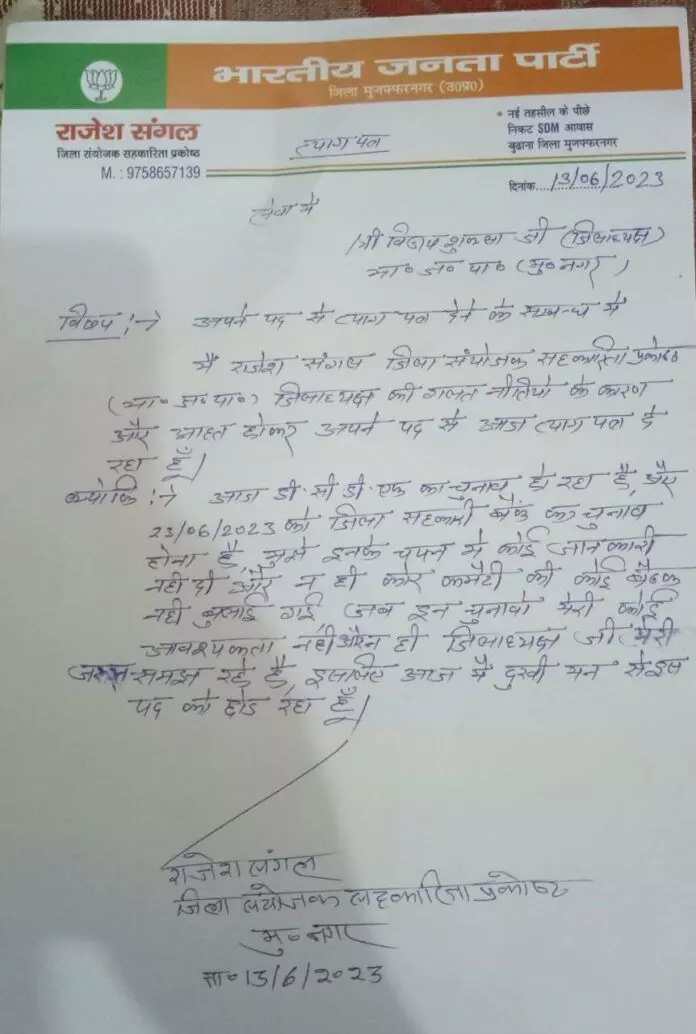 भारतीय जनता पार्टी
जिला मुजफ्फरनगर (उ०प्र०)
राजेश संगल
जिला संयोजक सहकारिता प्रकोष्ठ
M. : 9758657139
त्याग पत्र
• नई तहसील के पीछे
निकट SDM आवास
बुढाना जिला मुजफ्फरनगर
दिनांक....13/06/2023
सेवा में
श्री विजय शुक्ला जी (जिलाध्यक्ष)
भा० ज० पा० (मु० नगर)
विषय :→ अपने पद से त्याग पत्र देने के सम्बन्ध में
मैं राजेश संगल जिला संयोजक सहकारिता प्रकोष्ठ
(भा० ज० पा०) जिलाध्यक्ष की गलत नीतियो के कारण
और आहत होकर अपने पद से आज त्याग पत्र दे
रहा हूँ।
क्योकि :→ आज डी. सी डी. एफ का चुनाव हो रहा है, और
23/06/2023 को जिला सहकारी बैंक का चुनाव
होना है, मुझे इनके चयन मे कोई जानकारी
नही दी और न ही कोर कमैटी की कोई बैठक
नही बुलाई गई, जब इन चुनावो मेरी कोई
आवश्यकता नही और न ही जिलाध्यक्ष जी मेरी
जरूरत समझ रहे है, इसलिए आज मै दुखी मन से इस
पद को छोड रहा हूँ।
राजेश संगल
जिला संयोजक सहकारिता प्रकोष्ठ
मु० नगर
ता० 13/6/2023